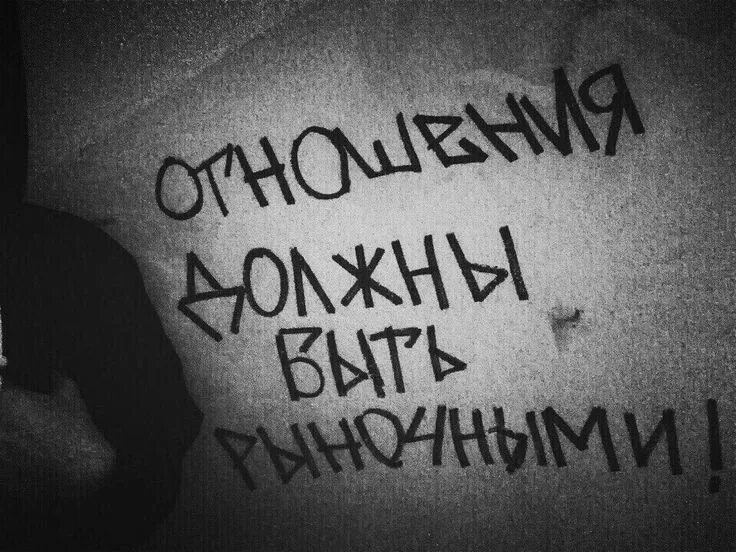 ОТНОШЕНИЯ
ДОЛЖНЫ
БЫТЬ
РЫНОЧНЫМИ!